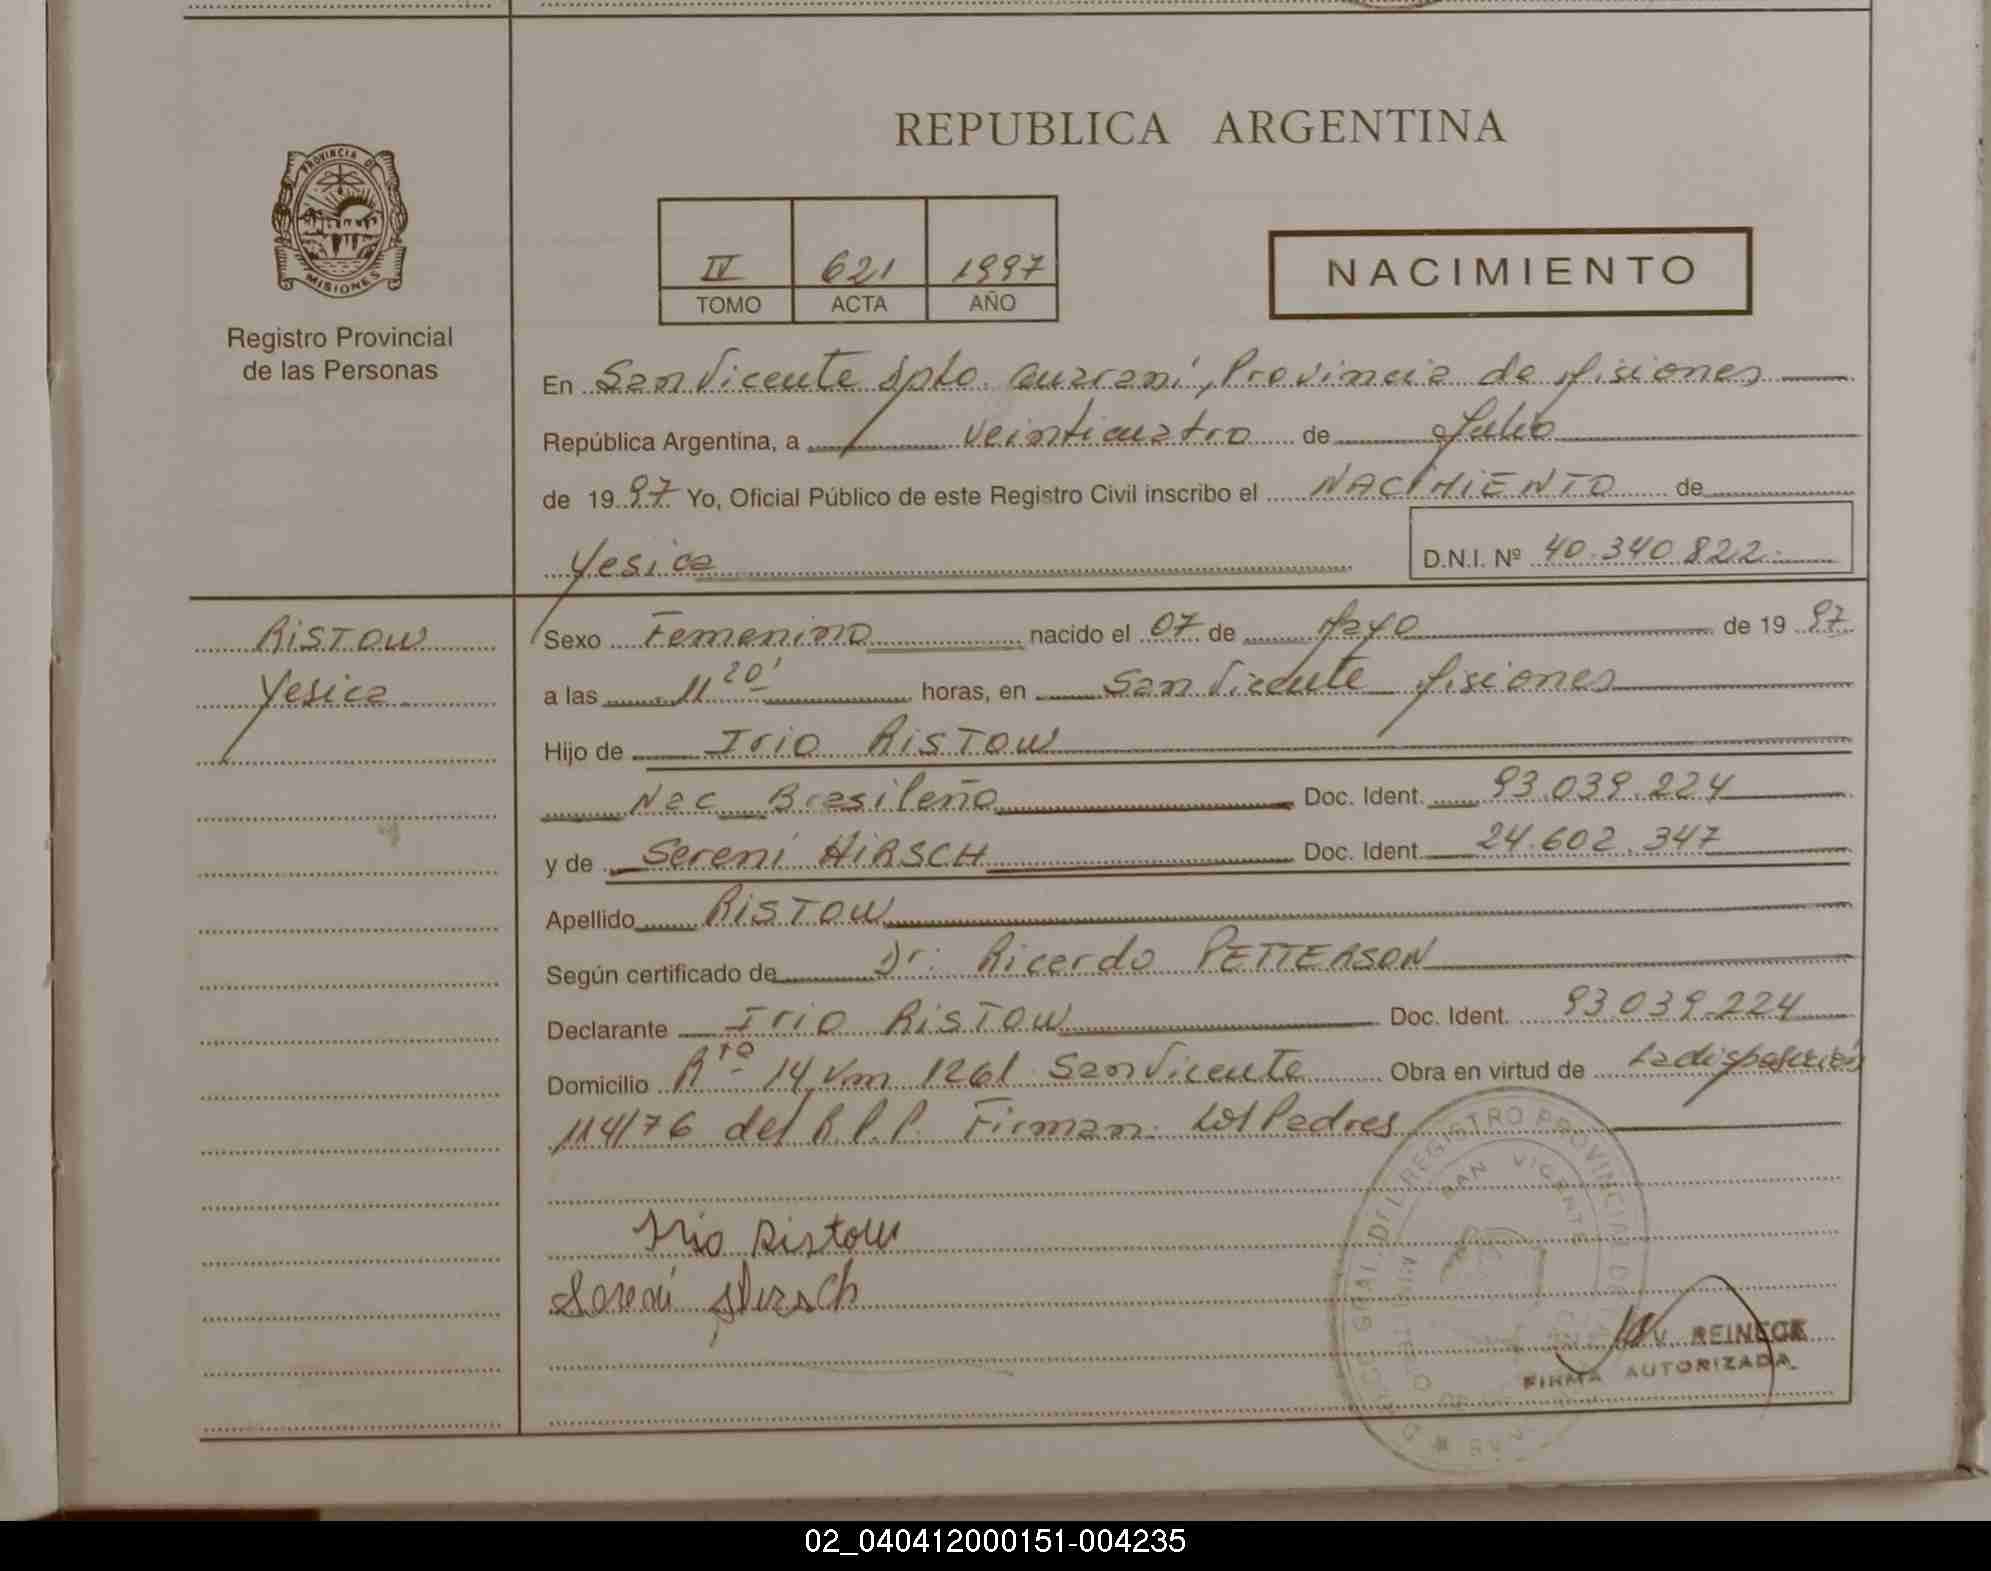 REPUBLICA ARGENTINA
PROVINCIA DE
MISIONES
Registro Provincial
de las Personas
IV 621 1997
TOMO ACTA AÑO
NACIMIENTO
En San Vicente Dpto. Guaraní, Provincia de Misiones
República Argentina, a veinticuatro de Julio
de 1997 Yo, Oficial Público de este Registro Civil inscribo el NACIMIENTO de
Yesica D.N.I. Nº 40.340.822
RISTOW
Yesica
Sexo Femenino nacido el 07 de Mayo de 1997
a las 11 20' horas, en San Vicente Misiones
Hijo de Irio RISTOW
Nac Brasileño Doc. Ident. 93.039.224
y de Sereni HIRSCH Doc. Ident. 24.602.347
Apellido RISTOW
Según certificado de Dr. Ricardo PETTERSON
Declarante Irio RISTOW Doc. Ident. 93.039.224
Domicilio Rta 14 Km 1261 San Vicente Obra en virtud de La disposición
114/76 del R.P.P. Firman Los Padres
Irio Ristow
Sereni Hirsch
REGISTRO PROVINCIAL DE
SAN VICENTE
V. REINECK
FIRMA AUTORIZADA
02_040412000151-004235